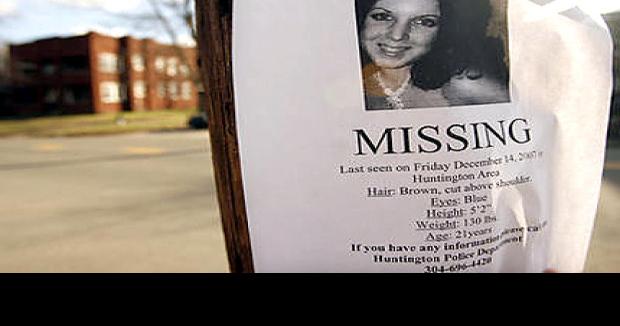 MISSING
Last seen on Friday December 14, 2007
Huntington Area
Hair: Brown, cut above shoulder.
Eyes: Blue
Height: 5'2"
Weight: 130 lbs.
Age: 21years
If you have any information please
Huntington Police Department
304-696-4420